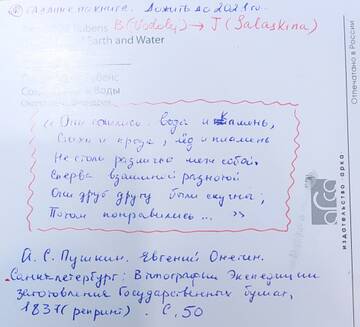 Гадание по книге. Дожить до 2021 го...
Rubens B(Vodolij) → J (Salaskina)
Earth and Water
Воды
"Они сошлись. Вода и камень,
Стихи и проза, лёд и пламень
Не столь различны меж собой.
Сперва взаимной разнотой
Они друг другу были скучны;
Потом понравились... "
А.С. Пушкин. Евгений Онегин.
Санкт-Петербург: В типографии Экспедиции
заготовления Государственных бумаг,
1837 (репринт). С. 50
Отпечатано в России
арка
издательство арка